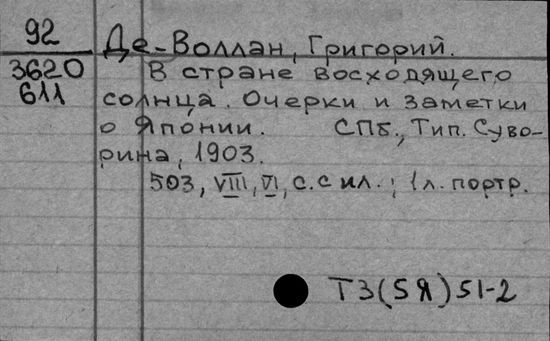 92 Де-Воллан, Григорий.
3620 В стране восходящего
611 солнца. Очерки и заметки
о Японии. СПб., Тип. Суво-
рина, 1903.
503, VIII, VI, с. с ил.; 1 л. портр.
Т3(5Я)51-2